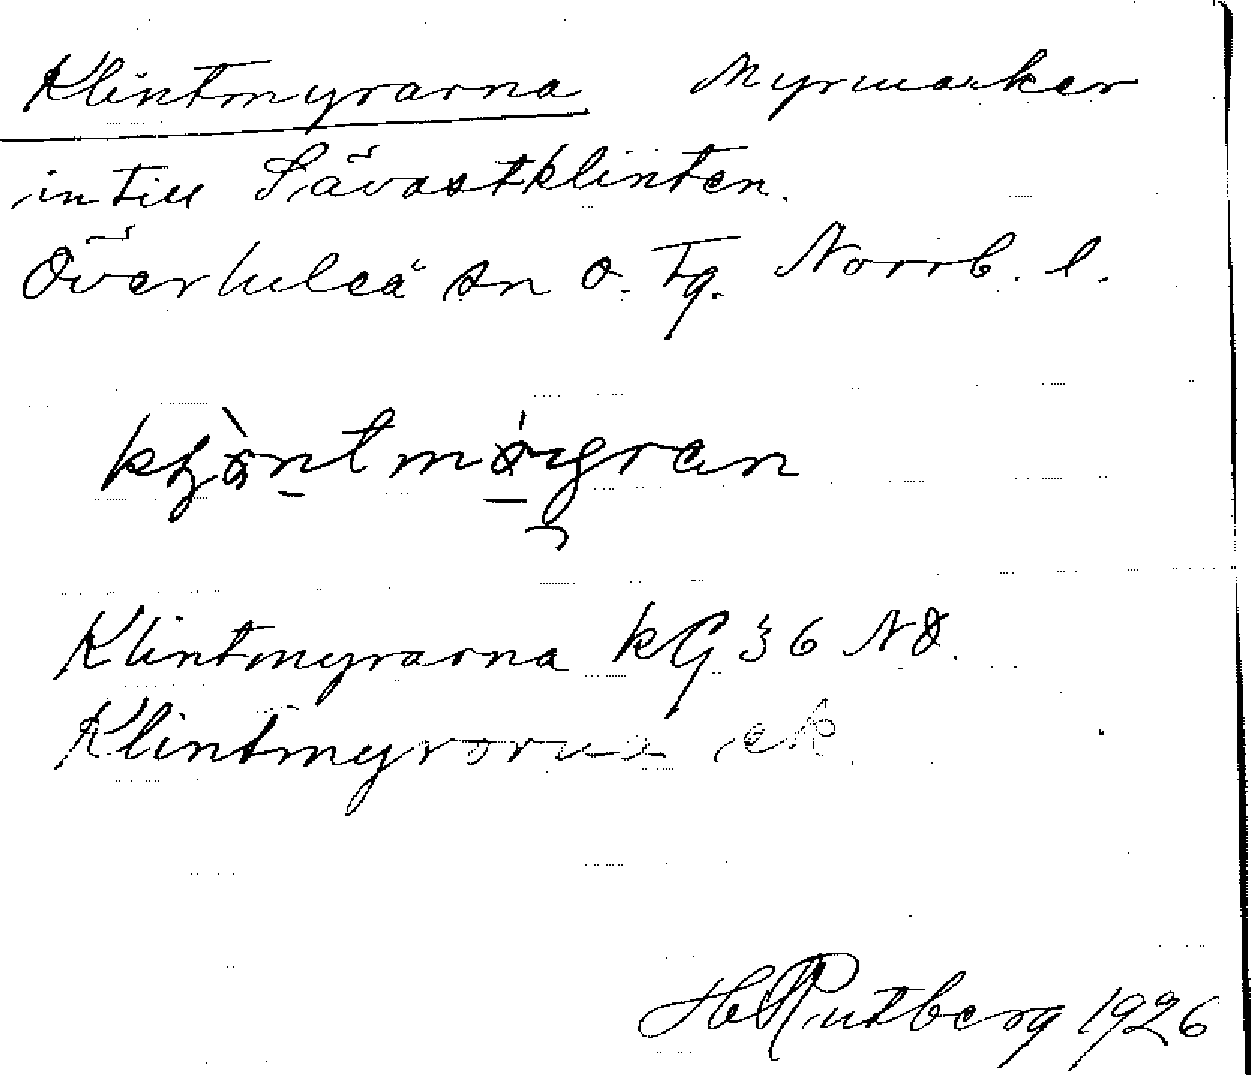 Klintmyrarna Myrmarker
intill Sävastklinten.
Överluleå sn o. Tg. Norrb. l.
Klintmyrarna kG 36 NO.
Klintmyrarna ek
H Rutberg 1926